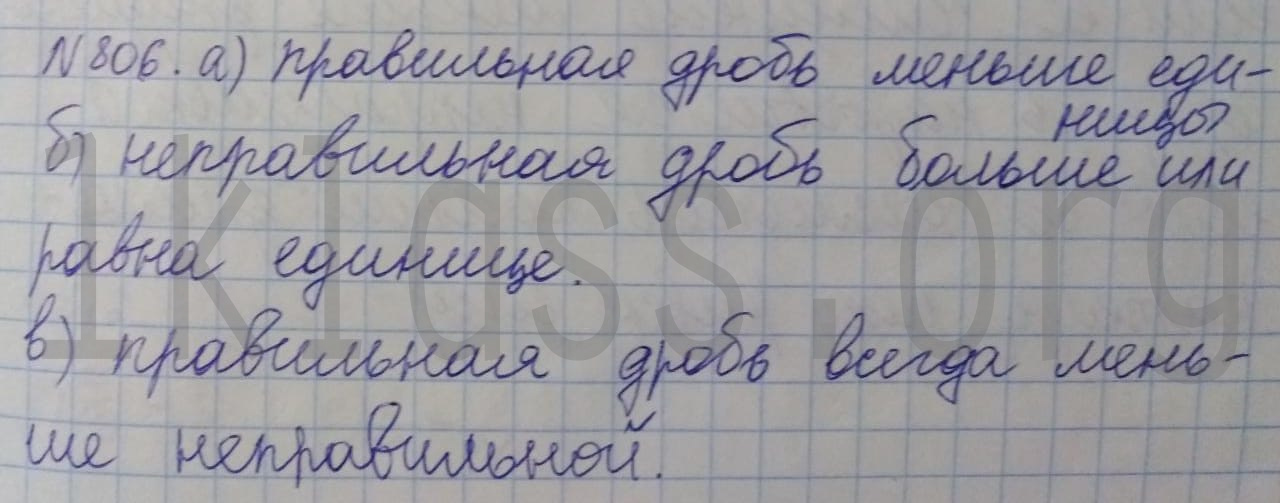 N 806. а) правильная дробь меньше еди-
ницы
б) неправильная дробь больше или
равна единице.
в) правильная дробь всегда мень-
ше неправильной.
1klass.org